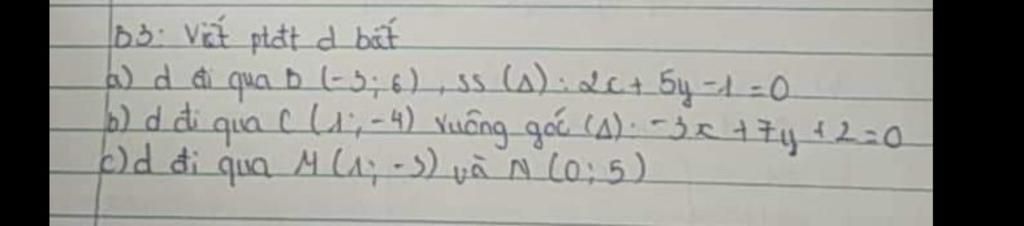 B3: Viết ptđt d biết
a) d đi qua D (-3; 6), ss (Δ): 2x + 5y - 1 = 0
b) d đi qua C (1; -4) vuông góc (Δ): -3x + 7y + 2 = 0
c) d đi qua M (1; -3) và N (0; 5)